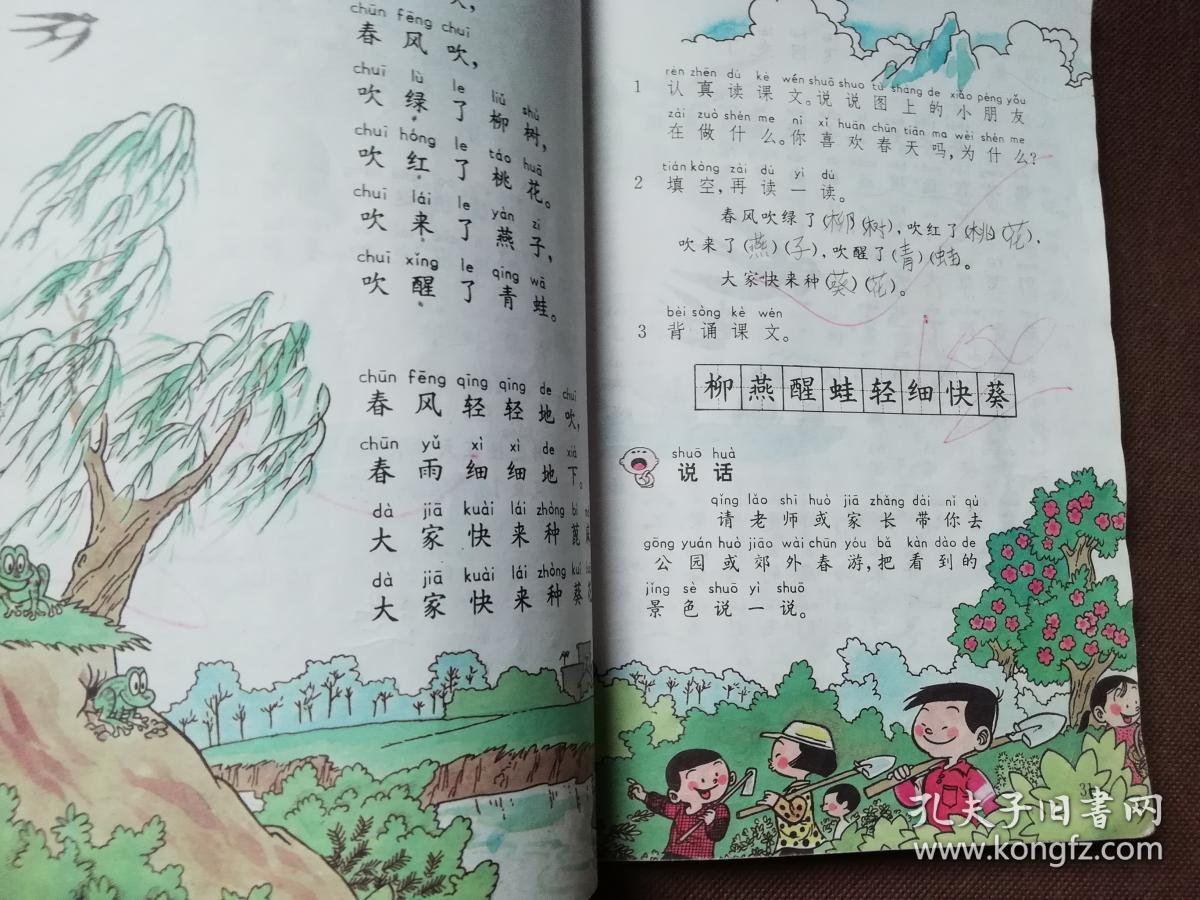 chūn fēng chuī
春风吹，
chuī lǜ le liǔ shù
吹绿了柳树，
chuī hóng le táo huā
吹红了桃花。
chuī lái le yàn zi
吹来了燕子，
chuī xǐng le qīng wā
吹醒了青蛙。
chūn fēng qīng qīng de chuī
春风轻轻地吹，
chūn yǔ xì xì de xià
春雨细细地下。
dà jiā kuài lái zhòng bì
大家快来种蓖
dà jiā kuài lái zhòng kuí
大家快来种葵
rèn zhēn dú kè wén shuō shuo tú shàng de xiǎo péng yǒu
1 认真读课文。说说图上的小朋友
zài zuò shén me nǐ xǐ huān chūn tiān ma wèi shén me
在做什么。你喜欢春天吗，为什么？
tián kòng zài dú yì dú
2 填空，再读一读。
春风吹绿了(柳)(树)，吹红了(桃)(花)，
吹来了(燕)(子)，吹醒了(青)(蛙。
大家快来种(葵)(花)。
bèi sòng kè wén
3 背诵课文。
100
柳燕醒蛙轻细快葵
shuō huà
说话
qǐng lǎo shī huò jiā zhǎng dài nǐ qù
请老师或家长带你去
gōng yuán huò jiāo wài chūn yóu bǎ kàn dào de
公园或郊外春游，把看到的
jǐng sè shuō yì shuō
景色说一说。
孔夫子旧書网
www.kongfz.com